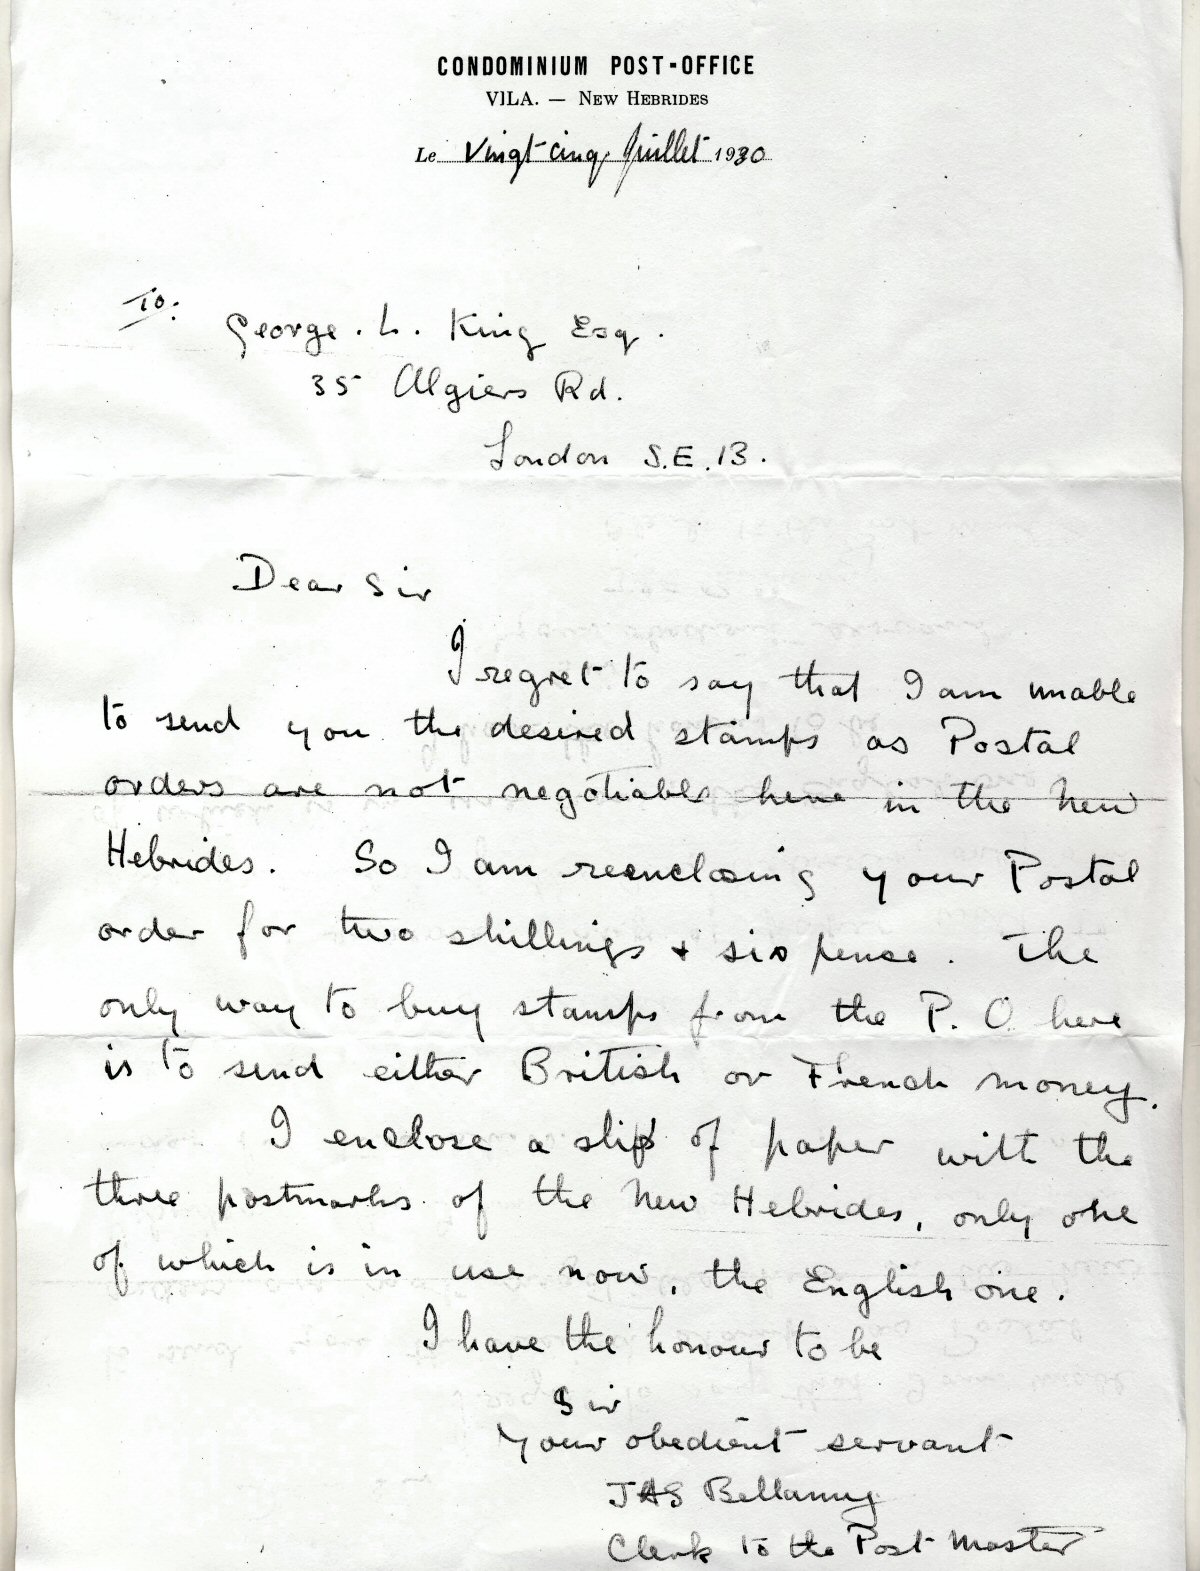 CONDOMINIUM POST-OFFICE
VILA. — NEW HEBRIDES
Le Vingt-cinq Juillet 1930
To:
George. L. King Esq.
35 Algiers Rd.
London S.E.13.
Dear Sir
I regret to say that I am unable
to send you the desired stamps as Postal
orders are not negotiable here in the New
Hebrides. So I am reenclosing your Postal
order for two shillings & six pense. The
only way to buy stamps from the P.O. here
is to send either British or French money.
I enclose a slip of paper with the
three postmarks of the New Hebrides, only one
of which is in use now, the English one.
I have the honour to be
Sir
Your obedient servant
JAS Bellamy
Clerk to the Post Master